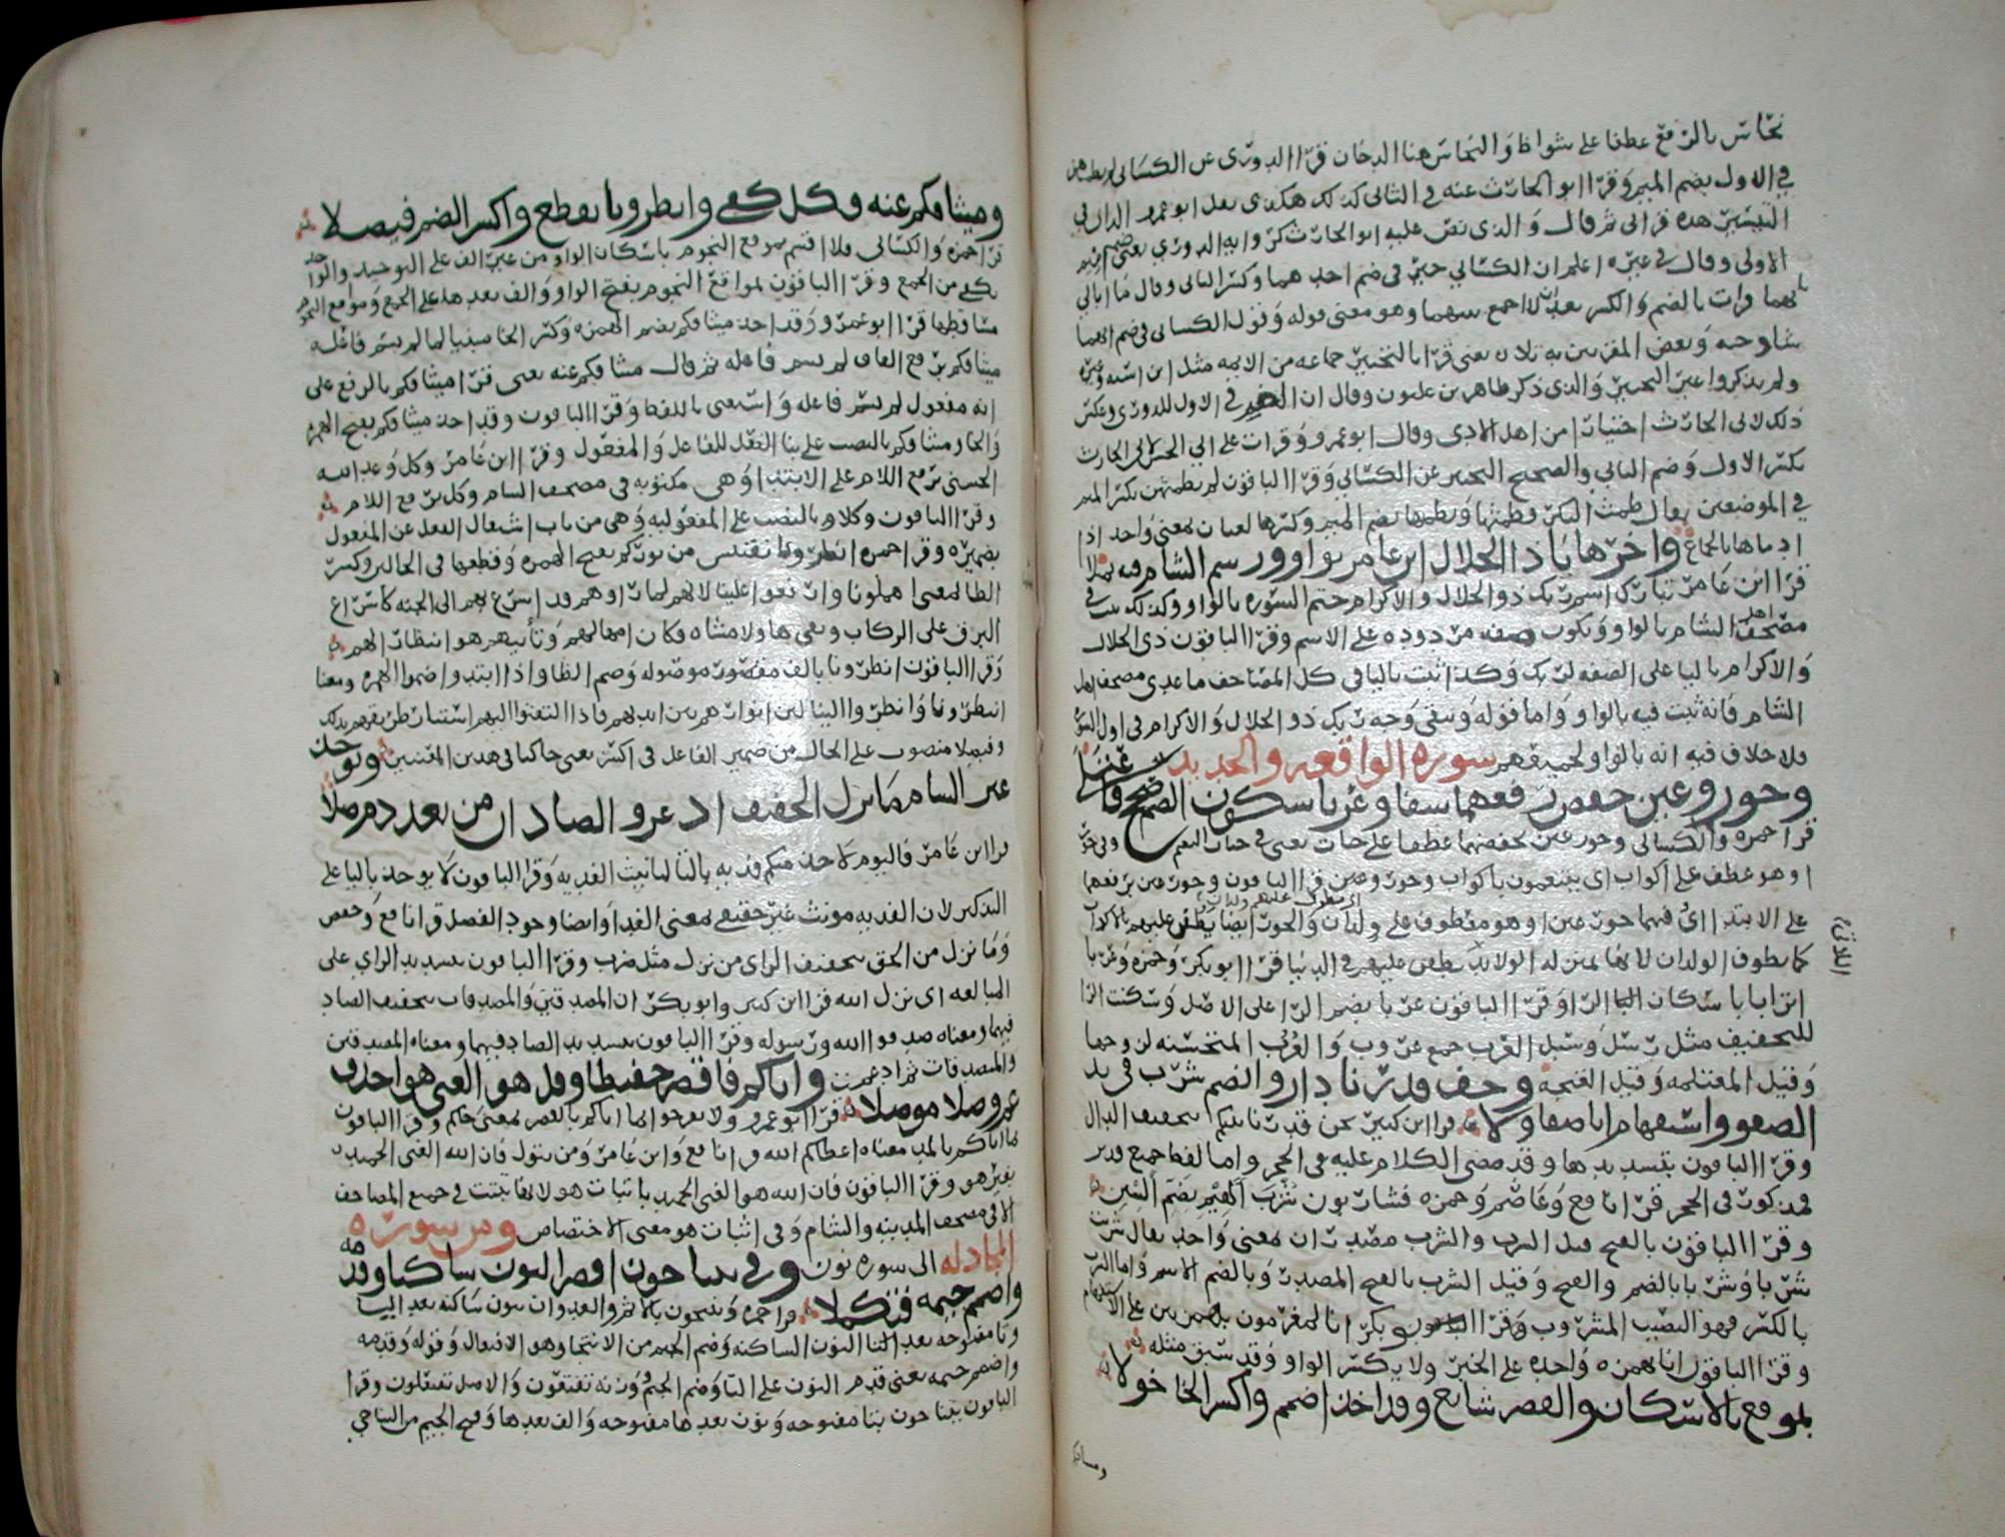 نحاس بالرفع عطفا على شواظ والنحاس هنا الدخان قرا الدورى عن الكسائى لم يطمثهن
في الاول بضم الميم وقرا ابو الحارث عنه في الثانى كذلك هكذى نقل ابو عمرو الدانى في
التيسير هذه قراتى ثم قال والذى نص عليه ابو الحارث كرواية الدوري يعنى ضم
الاولى وقال في غيره اعلم ان الكسائي خير في ضم احدهما وكسر الثانى وقال ما ابالي
بايهما قرات بالضم والكسر بعد ان لا اجمع بينهما وهو معنى قوله وقول الكسائى ضم ايهما
تشا وجيه وبعض المقريين به تلا يعنى قرا بالتخيير جماعه من الايمه مثل ابن اشته وغيره
ولم يذكروا غير التخيير والذى ذكر طاهر بن غلبون وقال ان الضم في الاول للدورى وعكس
ذلك لابي الحارث اختيارا من اهل الادى وقال ابو عمرو وقرات على ابي الحسن لابى الحارث
بكسر الاول وضم الثاني والصحيح التخيير عن الكسائي وقرا الباقون لم يطمثهن بكسر الميم
في الموضعين يقال طمث البكر يطمثها ويطمثها بضم الميم وكسرها لغتان بمعنى واحد اذا
ادماها بالجماع واخرها يا ذا الجلال ابن عامر بواو ورسم الشام فيه تمثلا
قرا ابن عامر تبارك اسم ربك ذو الجلال والاكرام ختم السوره بالواو وكذلك ثبت في
مصحف اهل الشام بالواو ويكون صفه مردوده على الاسم وقرا الباقون ذى الجلال
والاكرام باليا على الصفه لربك وكذا ثبت باليا فى كل المصاحف ما عدى مصحف اهل
الشام فانه ثبت فيه بالواو واما قوله ويبقى وجه ربك ذو الجلال والاكرام في اول السوره
فلا خلاف فيه انه بالواو لجميعهم سورة الواقعه والحديد
وحور وعين خفض رفعهما شفا وعربا سكون الضم صحح فاعتلا
قرا حمزه والكسائى وحور عين بخفضهما عطفا على جنات يعنى في جنات النعيم وفى حور
او هو عطف على اكواب اى ينعمون باكواب وحور وعين قرا الباقون وحور عين برفعهما
على الابتدا اى فيها حور عين او هو معطوف على ولدان والحور ايضا يطفن عليهم بالاكواب
اى يطوف عليهم ولدان
كما يطوف الولدان لانها بمنزله الولايد يطفن عليهم في الدنيا قرا ابو بكر وحمزه وعربا
اترابا باسكان الرا وقرا الباقون عربا بضم الرا على الاصل وسكنت الرا
للتخفيف مثل رسل وسبل العرب جمع عروب والعرب المتحسنه لزوجها
وقيل المغتلمه وقيل الغنجه وخف قدرنا دار وانضم شرب فى ند
الصفو واستفهام انا صفا ولا قرا ابن كثير نحن قدرنا بينكم بتخفيف الدال
وقرا الباقون بتشديدها وقد مضى الكلام عليه فى الحجر وامالفظا جميع قدر
فمذكور فى الحجر قرا نافع وعاصم وحمزه فشاربون شرب الهيم بضم الشين
وقرا الباقون بالفتح قيل الشرب والشرب مصدران بمعنى واحد يقال شربت
شربا وشربا بالضم والفتح وقيل الشرب بالفتح المصدر وبالضم الاسم واما الشرب
بالكسر فهو النصيب المشروب وقرا ابو بكر انا لمغرمون بهمزتين على الاستفهام
وقرا الباقون انا بهمزه واحده على الخبر ولا يكسر الواو وقد سبق مثله
بموقع بالاسكان والقصر شايع وقد اخذ اضمم واكسر الخا خولا
وميثاقكم
وميثاقكم عنه وكل كفى وانظرونا بقطع واكسر الضم فيصلا
قرا حمزه والكسائى فلا اقسم بموقع النجوم باسكان الواو من غير الف على التوحيد والواحد
يكفي من الجمع وقرا الباقون بمواقع النجوم بفتح الواو والف بعدها على الجمع ومواقع النجوم
مساقطها قرا ابو عمرو وقد اخذ ميثاقكم بضم الهمزه وكسر الخا مبنيا لما لم يسم فاعله
ميثاقكم برفع القاف لم يسم فاعله ثم قال ميثاقكم عنه يعنى قرا ميثاقكم بالرفع على
انه مفعول لم يسم فاعله واستغنى باللفظ وقرا الباقون وقد اخذ ميثاقكم بفتح الهمزه
والخا وميثاقكم بالنصب على بنا الفعل للفاعل والمفعول وقرا ابن عامر وكل وعد الله
الحسنى برفع اللام على الابتدا وهى مكتوبه فى مصحف الشام وكل برفع اللام
وقرا الباقون وكلا بالنصب على المفعوليه وهى من باب اشتغال الفعل عن المفعول
بضميره وقرا حمزه انظرونا نقتبس من نوركم بفتح الهمزه وقطعها فى الحالين وكسر
الظا بمعنى امهلونا وارفقوا علينا لانهم لما راوهم قد اسرع بهم الى الجنه كاسراع
البرق على الركاب وبقى هاولا مشاه فكان امهالهم وتأنيهم هو انتظار لهم
وقرا الباقون انظرونا بالف مقصور موصوله وضم الظا واذا ابتدوا ضموا الهمزه ومعنا
انتظرونا وانظروا الينا لان انوارهم بين ايديهم فاذا التفتوا اليهم استنار طريقهم بذلك
وفيصلا منصوب على الحال من ضمير الفاعل فى اكسر يعنى حاكما فى هذين المعنيين ويوخذ
غير الشام ما نزل الخفيف اذ عز والصادان من بعد دم صلا
قرا ابن عامر فاليوم لا توخذ منكم فديه بالتا لتانيث الفديه وقرا الباقون لا يوخذ باليا على
التذكير لان الفديه مونث غير حقيقي بمعنى الفدا وايضا وجود الفصل قرا نافع وحفص
وما نزل من الحق بتخفيف الزاى من نزل مثل ضرب وقرا الباقون بتشديد الزاي على
المبالغه اى نزل الله قرا ابن كثير وابو بكر ان المصدقين والمصدقات بتخفيف الصاد
فيهما ومعناه صدقوا الله ورسوله وقرا الباقون بتشديد الصاد فيهما ومعناه المتصدقين
والمتصدقات ثم ادغمت واتاكم فاقصر حفيظا وقل هو الغنى هو احذف
عم وصلا موصلا قرا ابو عمرو ولا تفرحوا بما اتاكم بالقصر بمعنى جاكم وقرا الباقون
بما اتاكم بالمد معناه اعطاكم الله قرا نافع وابن عامر ومن يتول فان الله الغنى الحميد
بغير هو وقرا الباقون فان الله هو الغنى الحميد باثبات هو لانها ثبتت في جميع المصاحف
الا فى مصحف المدينه والشام وفى اثبات هو معنى الاختصاص ومن سورة
المجادله الى سوره نون وفي يتناجون اقصر النون ساكنا وقدمه
واضمم جيمه فتكملا قرا حمزه وينتجون بالاثم والعدوان بنون ساكنه بعد اليا
وتا مفتوحه بعد النون الساكنه وضم الجيم من الانتجا وهو الافتعال وقوله وقدمه
واضمم جيمه يعنى قدم النون على التا وضم الجيم وزنه تفتعون والاصل تفتعلون وقرا
الباقون يتناجون بتا مفتوحه ونون بعدها مفتوحه والف بعدها وفتح الجيم من التناجي